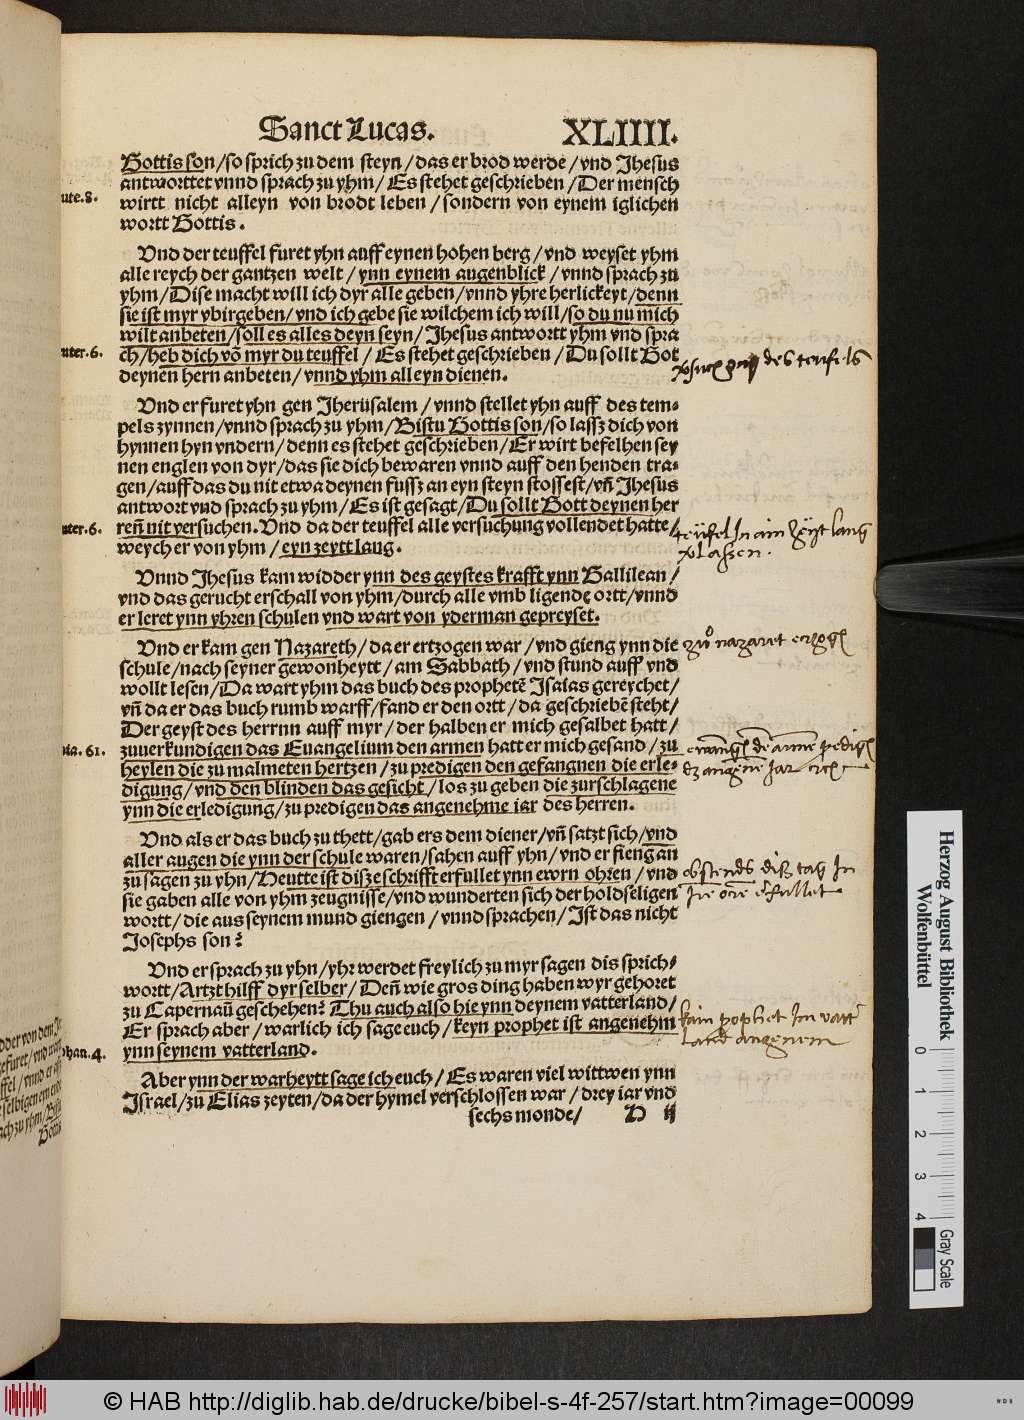 Sanct Lucas. XLIIII.
Gottis son/so sprich zu dem steyn/das er brod werde/vnd Jhesus
antworttet vnnd sprach zu yhm/Es stehet geschrieben/Der mensch
ute.8.
wirtt nicht alleyn von brodt leben/sondern von eynem iglichen
wortt Gottis.
Vnd der teuffel furet yhn auff eynen hohen berg/vnd weyset yhm
alle reych der gantzen welt/ynn eynem augenblick/vnnd sprach zu
yhm/Dise macht will ich dyr alle geben/vnnd yhre herlickeyt/denn
sie ist myr vbirgeben/vnd ich gebe sie wilchem ich will/so du nu mich
wilt anbeten/soll es alles deyn seyn/Jhesus antwortt yhm vnd spra
uter.6.
ch/heb dich võ myr du teuffel/Es stehet geschrieben/Du sollt Got
deynen hern anbeten/vnnd yhm alleyn dienen.
des teufels
Vnd er furet yhn gen Jherusalem/vnnd stellet yhn auff des tem=
pels zynnen/vnnd sprach zu yhm/Bistu Gottis son/so lassz dich von
hynnen hyn vndern/denn es stehet geschrieben/Er wirt befelhen sey
nen englen von dyr/das sie dich bewaren vnnd auff den henden tra=
gen/auff das du nit etwa deynen fussz an eyn steyn stossest/vñ Jhesus
antwort vnd sprach zu yhm/Es ist gesagt/Du sollt Gott deynen her
uter.6.
ren̄ nit versuchen.Vnd da der teuffel alle versuchung vollendet hatte/
weych er von yhm/eyn zeytt lang.
teüfel In ain zeyt lang
lassen.
Vnnd Jhesus kam widder ynn des geystes krafft ynn Gallilean/
vnd das gerucht erschall von yhm/durch alle vmb ligende ortt/vnnd
er leret ynn yhren schulen vnd wart von yderman gepreyset.
Vnd er kam gen Nazareth/da er ertzogen war/vnd gieng ynn die
zuͦ nazaret
schule/nach seyner gewonheytt/am Sabbath/vnd stund auff vnd
wollt lesen/Da wart yhm das buch des prophetẽ Isaias gereychet/
vñ da er das buch rumb warff/fand er den ortt/da geschriebẽ steht/
Der geyst des herrnn auff myr/der halben er mich gesalbet hatt/
ia.61.
zuuerkundigen das Euangelium den armen hatt er mich gesand/zu
heylen die zu malmeten hertzen/zu predigen den gefangnen die erle=
digung/vnd den blinden das gesicht/los zu geben die zurschlagene
ynn die erledigung/zu predigen das angenehme iar des herren.
Vnd als er das buch zu thett/gab ers dem diener/vñ satzt sich/vnd
aller augen die ynn der schule waren/sahen auff yhn/vnd er fieng an
zu sagen zu yhn/Heutte ist disze schrifft erfullet ynn ewrn ohren/vnd
sie gaben alle von yhm zeugnisse/vnd wunderten sich der holdseligen
wortt/die aus seynem mund giengen/vnnd sprachen/Ist das nicht
Josephs son?
Vnd er sprach zu yhn/yhr werdet freylich zu myr sagen dis sprich=
wortt/Artzt hilff dyr selber/Deñ wie gros ding haben wyr gehoret
zu Capernaũ geschehen? Thu auch also hie ynn deynem vatterland/
Er sprach aber/warlich ich sage euch/keyn prophet ist angenehm
kain prophet Im vatt
han.4.
ynn seynem vatterland.
land angenem
Aber ynn der warheytt sage ich euch/Es waren viel wittwen ynn
Israel/zu Elias zeyten/da der hymel verschlossen war/drey iar vnd
sechs monde/ H ij
Herzog August Bibliothek
Wolfenbüttel
0 1 2 3 4
Gray Scale
© HAB http://diglib.hab.de/drucke/bibel-s-4f-257/start.htm?image=00099